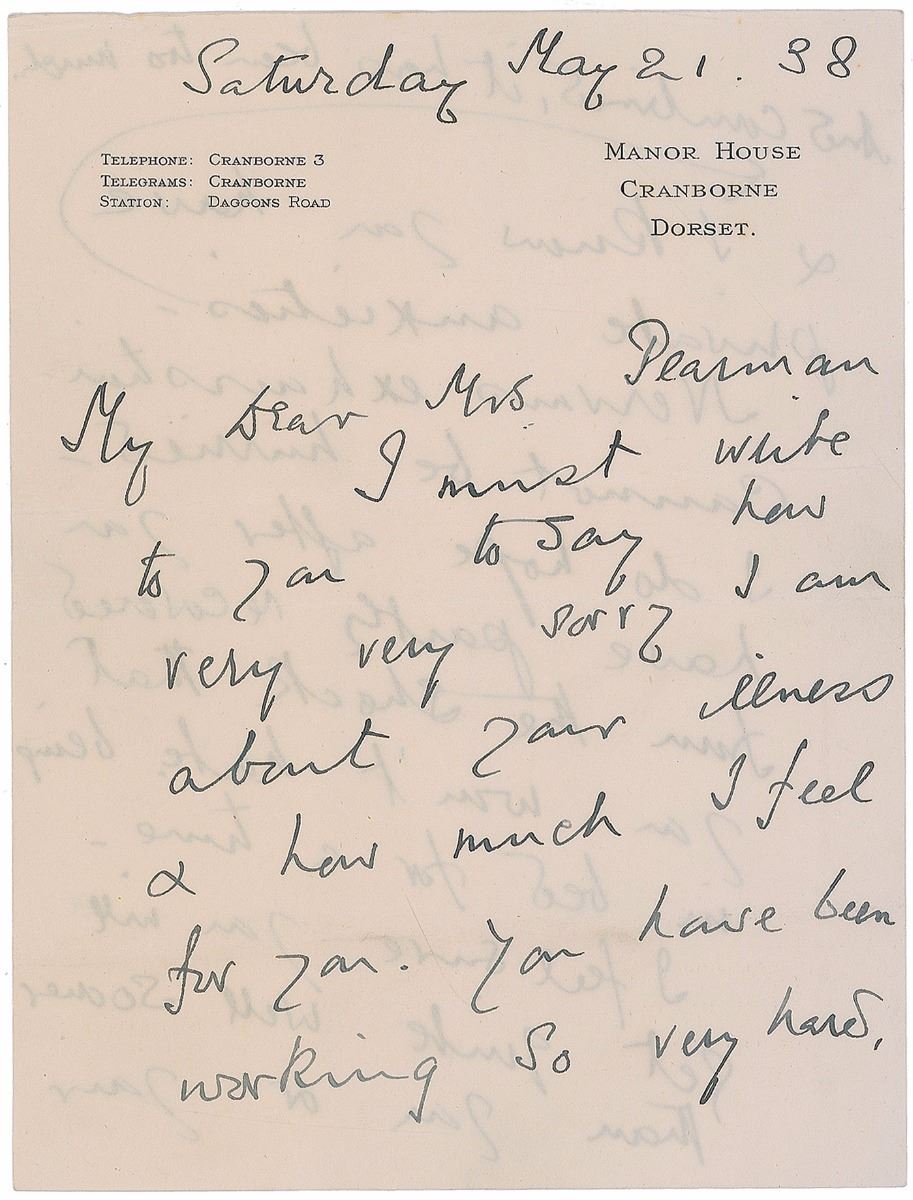 Saturday May 21. 38
TELEPHONE: CRANBORNE 3
TELEGRAMS: CRANBORNE
STATION: DAGGONS ROAD
MANOR HOUSE
CRANBORNE
DORSET.
My Dear Mrs Pearman
I must write
to you to say how
very very sorry I am
about your illness
& how much I feel
for you. You have been
working so very hard,